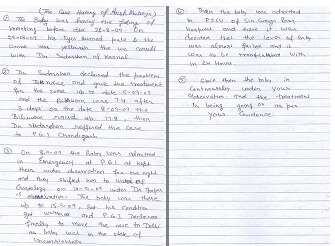 (The Case History of
① The Baby was having the feeling of
vomiting before dt. 28-8-09. On
his Eyes turned pale & the
urine was yellowish. We consult
with Dr. Sudarshan of Karnal.
② Dr. Sudarshan declared the problem
& Jaundice and give the treatment
for the same up to date 5-09-09
and the Bilirubin was 14 after
3 days on the date 8-09-09 the
Bilirubin raised up 17.8, then
Dr. Sudarshan reffered the case
to P.G.I Chandigarh
③ On 8-9-09 the Baby was admitted
in Emergency at P.G.I at night
there under observation for one night
and they shifted him to ward of
on 10-9-09 under Dr.
observation. The baby was there
up to 15-9-09, but his condition
got and P.G.I Doctors
finally to move the case to Delhi
as baby was in the state of
Unconsciousness
④ Then the baby was admitted
in PICU of Sir Ganga Ram
Hospital and here it was
decided that the liver of baby
was almost failed and it
was to be transplanted with
in 24 Hours
⑤ Since then the baby in
continuously under your
observation and the treatment
is being given as per
your Guidence